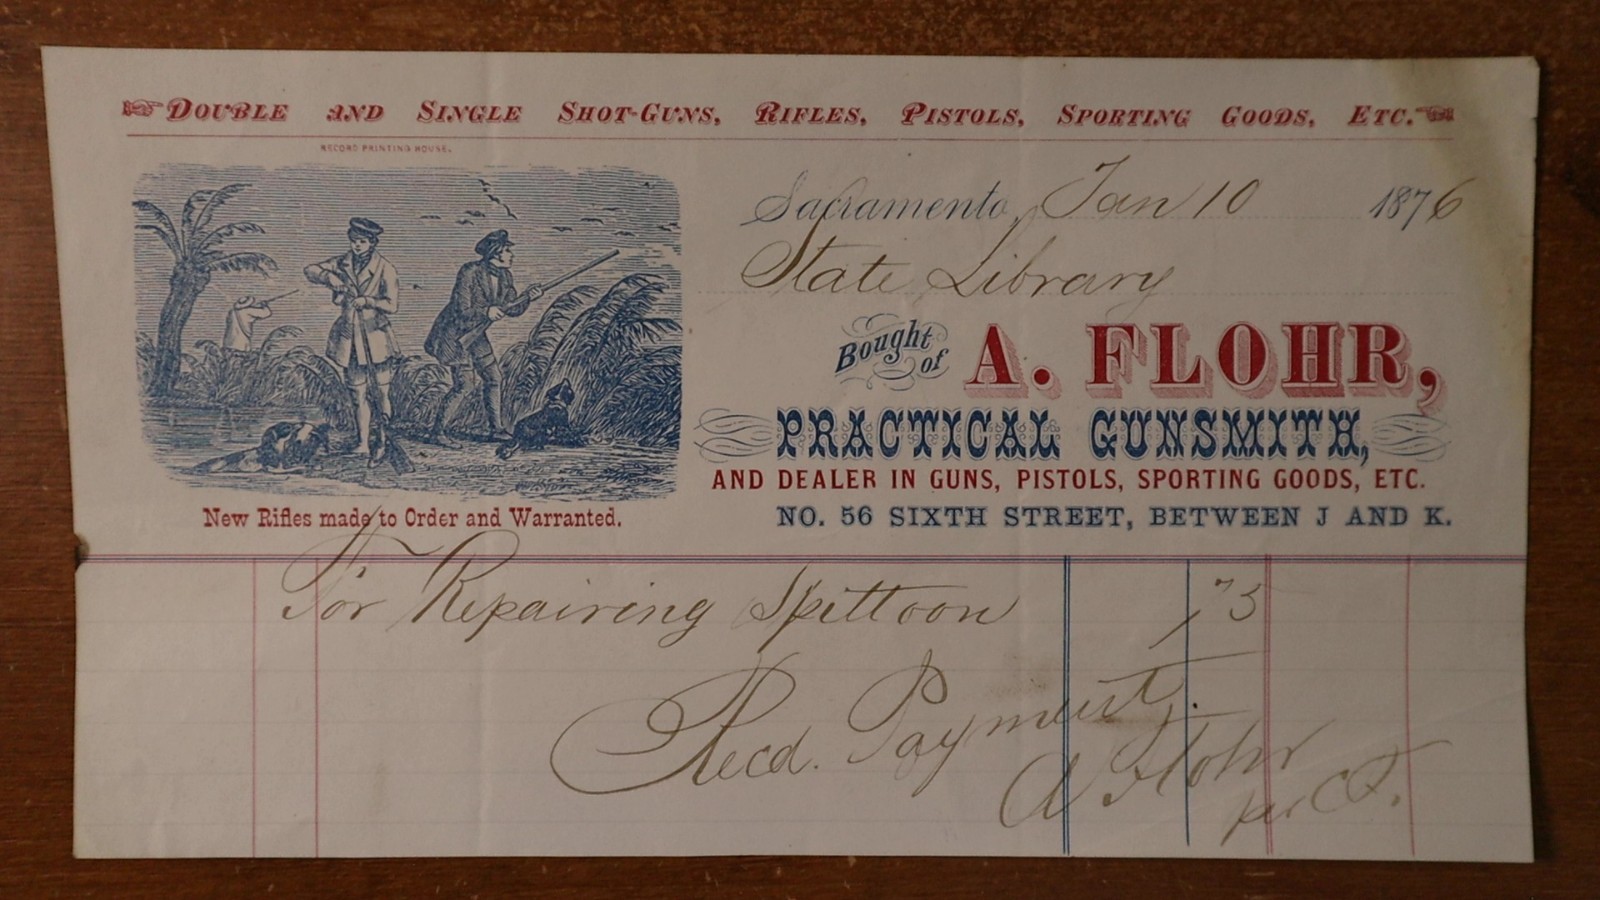 Double and Single Shot-Guns, Rifles, Pistols, Sporting Goods, Etc.
RECORD PRINTING HOUSE.
Sacramento, Jan 10 1876
State Library
Bought of A. FLOHR,
PRACTICAL GUNSMITH,
AND DEALER IN GUNS, PISTOLS, SPORTING GOODS, ETC.
New Rifles made to Order and Warranted.
NO. 56 SIXTH STREET, BETWEEN J AND K.
For Repairing Spittoon 75
Recd. Payment.
A Flohr
per C F.